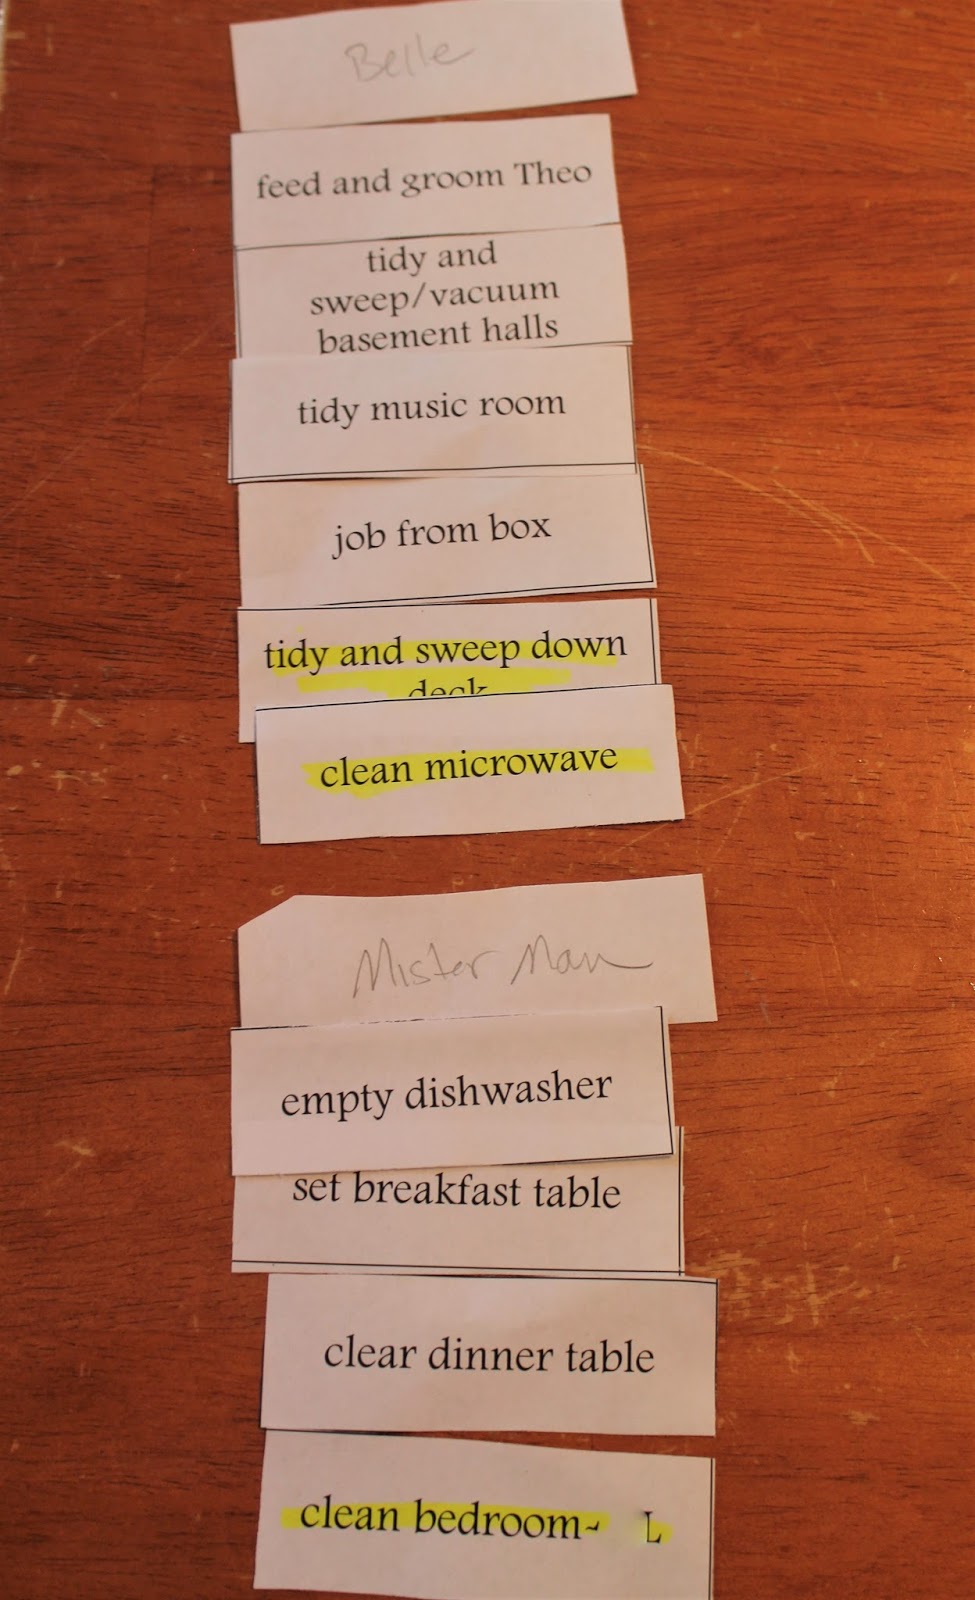 Belle
feed and groom Theo
tidy and
sweep/vacuum
basement halls
tidy music room
job from box
tidy and sweep down
deck
clean microwave
Mister Man
empty dishwasher
set breakfast table
clear dinner table
clean bedroom- L